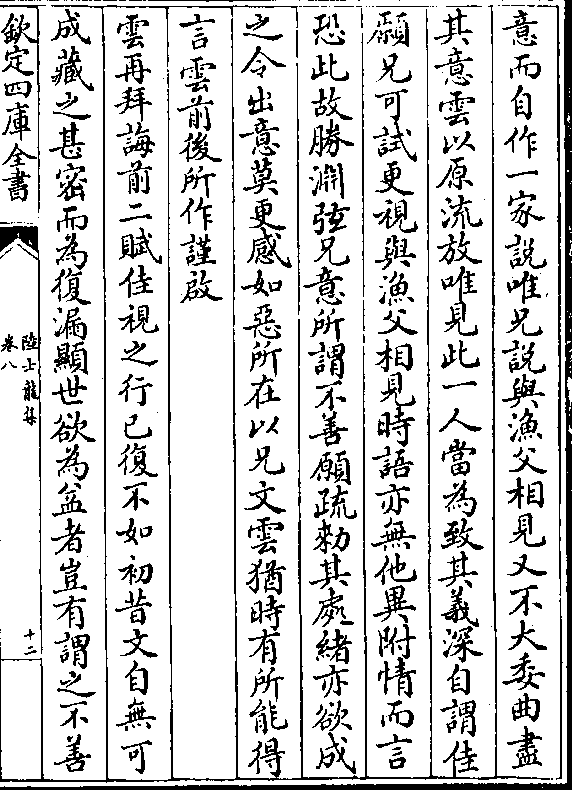 意而自作一家說唯兄說與漁父相見又不大委曲盡
其意雲以原流放唯見此一人當為致其義深自謂佳
願兄可試更視與漁父相見時語亦無他異附情而言
恐此故勝淵弦兄意所謂不善願疏敕其處緒亦欲成
之令出意莫更感如惡所在以兄文雲猶時有所能得
言雲前後所作謹啟
雲再拜誨前二賦佳視之行已復不如初昔文自無可
成藏之甚密而為復漏顯世欲為益者豈有謂之不善
欽定四庫全書
陸士龍集
卷八
十二